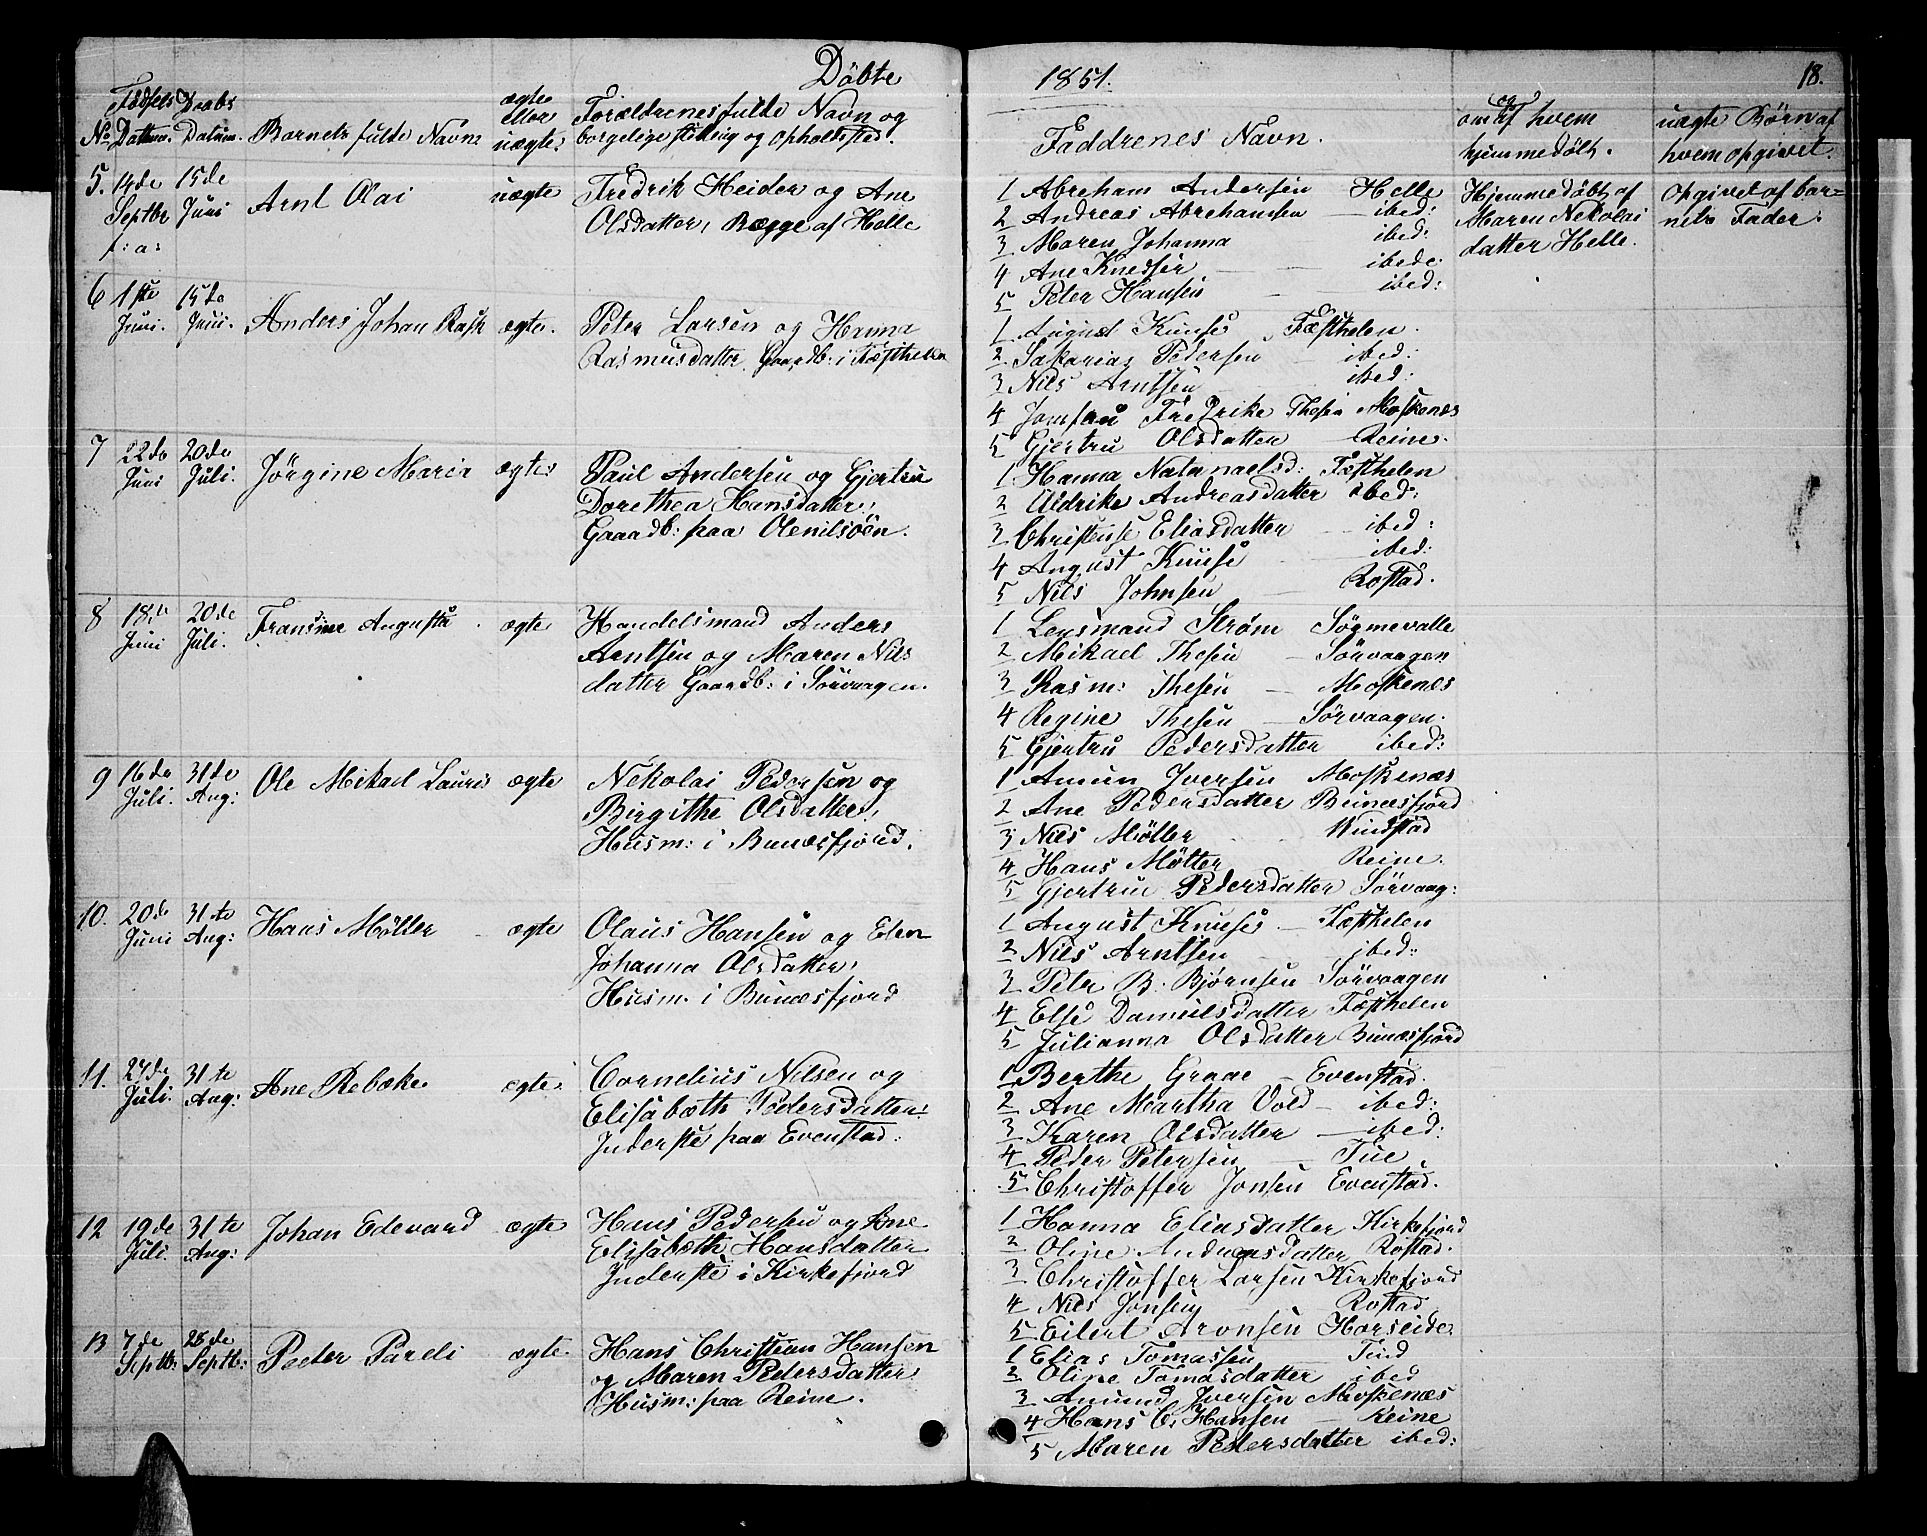 Döbte
1851.
18.
Fødsels Daabs
No Datum. Datum. Barnets fulde Navn
ægte eller uægte:
Forældrenes fulde Navn og
borgelige stilling og opholdssted.
Faddrenes Navn.
om og af hvem
hjemmedöbt.
uægte Børn af
hvem opgivet.
5. 14de Septbr f: a:
15de Juni
Arnt Olai
uægte
Fredrik Heider og Ane
Olsdatter, Begge af Helle
1 Abreham Andersen Helle
2 Andreas Abrehamsen ibed:
3 Maren Johanna ibed:
4 Ane Knedser ibede
5 Peter Hansen ibed:
Hjemmedöbt af
Maren Nekolai
datter Helle.
opgivet af bar=
nets Fader.
6 1ste Juni
15de Juni.
Anders Johan Rask
ægte.
Peter Larsen og Hanna
Rasmusdatter, Gaardb: i Fæsthelen
1 August Knuse Fæsthelen.
2 Sakarias Pedersen ibed:
3 Nils Arntsen ibed:
4 Jomfru Fredrike Thesen Moskenes
5 Gjertru Olsdatter Reine.
7 22de Juni
20de Juli.
Jørgine Maria
ægte
Paul Andersen og Gjertru
Dorethea Hansdatter,
Gaardb: paa Olenilsöen.
1 Hanna Natanaelsd: Fæsthelen
2 Uldrike Andreasdatter ibed:
3 Christense Eliasdatter ibed:
4 August Knuse ibed:
5 Nils Johnsen Rostad.
8 18de Juni
20de Juli.
Fransine Augusta
ægte
Handelsmand Anders
Arntsen og Maren Nils
datter Gaardb: i Sörvaagen.
1 Lensmand Strøm Sögmevalle
2 Mikael Thesen Sörvaagen
3 Rasm: Thesen Moskenes
4 Regine Thesen Sörvaagen.
5 Gjertru Pedersdatter ibed:
9 16de Juli.
31de Aug:
Ole Mikael Lauris
ægte
Nekolai Pedersen og
Birgithe Olsdatter,
Husm: i Bunæsfjord.
1 Amun Iversen Moskenæs
2 Ane Pedersdatter Bunæsfjord
3 Nils Møller Windstad
4 Hans Möller Reine.
5 Gjertrue Pedersdatter Sörvaag:
10. 20de Juni
31te Aug:
Hans Møller
ægte
Olaus Hansen og Elen
Johanna Olsdatter,
Husm. i Bunæsfjord
1 August Knuse Fæsthelen
2 Nils Arntsen ibed:
3 Peter B. Bjørnsen Sörvaagen
4 Else Danielsdatter Fæsthelen
5 Julianna Olsdatter Bunæsfjord
11. 27de Juli.
31te Aug:
Ane Rebæke
ægte
Cornelius Nilsen og
Elisabæth Pedersdatter
Inderste paa Evenstad.
1 Berthe Graae Evenstad.
2 Ane Martha Vold ibed:
3 Karen Olsdatter ibed:
4 Peder Petersen Tue.
5 Christoffer Jonsen Evenstad.
12 19de Juli.
31te Aug:
Johan Edevard
ægte
Hans Pedersen og Ane
Elisabæth Hansdatter
Inderste i Kirkefjord
1 Hanna Eliasdatter Kirkefjord
2 Oline Andreasdatter Rostad.
3 Christoffer Larsen Kirkefjord
4 Nils Jonsen Rostad
5 Eilert Aronsen Horseide.
13 7de Septb:
28de Septb:
Peeter Pareli
ægte
Hans Christian Hansen
og Maren Pedersdatter
Husm: paa Reine.
1 Elias Tomassen Tind
2 Oline Tomasdatter ibed
3 Amund Iversen Moskenæs
4 Hans C. Hansen Reine
5 Maren Pedersdatter ibed: